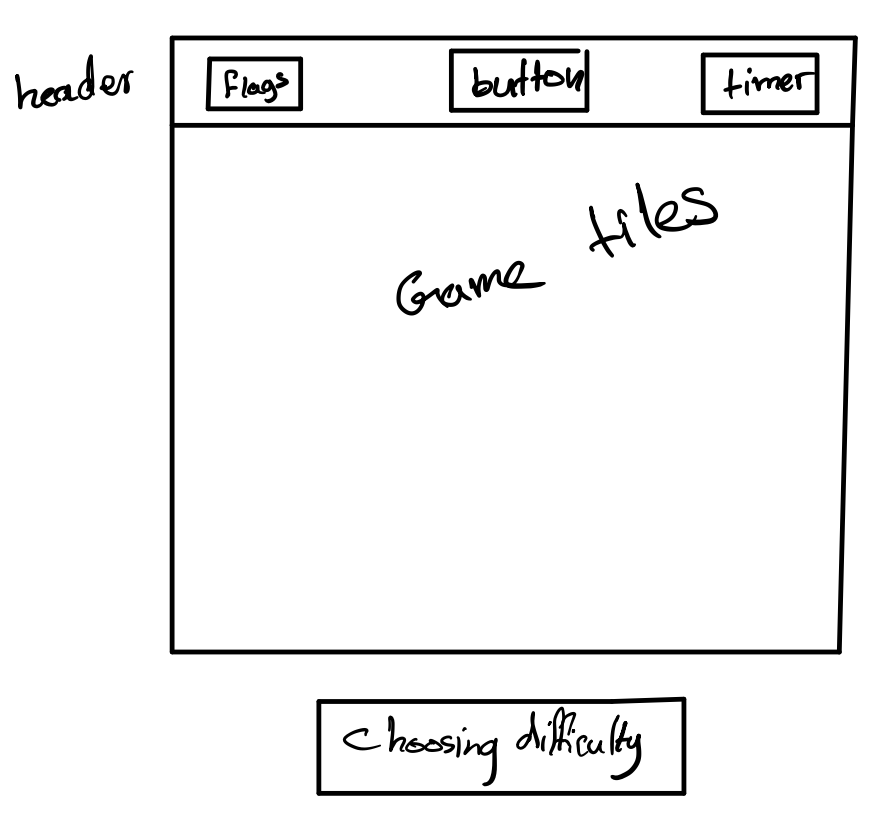 header
flags
button
timer
Game tiles
Choosing difficulty